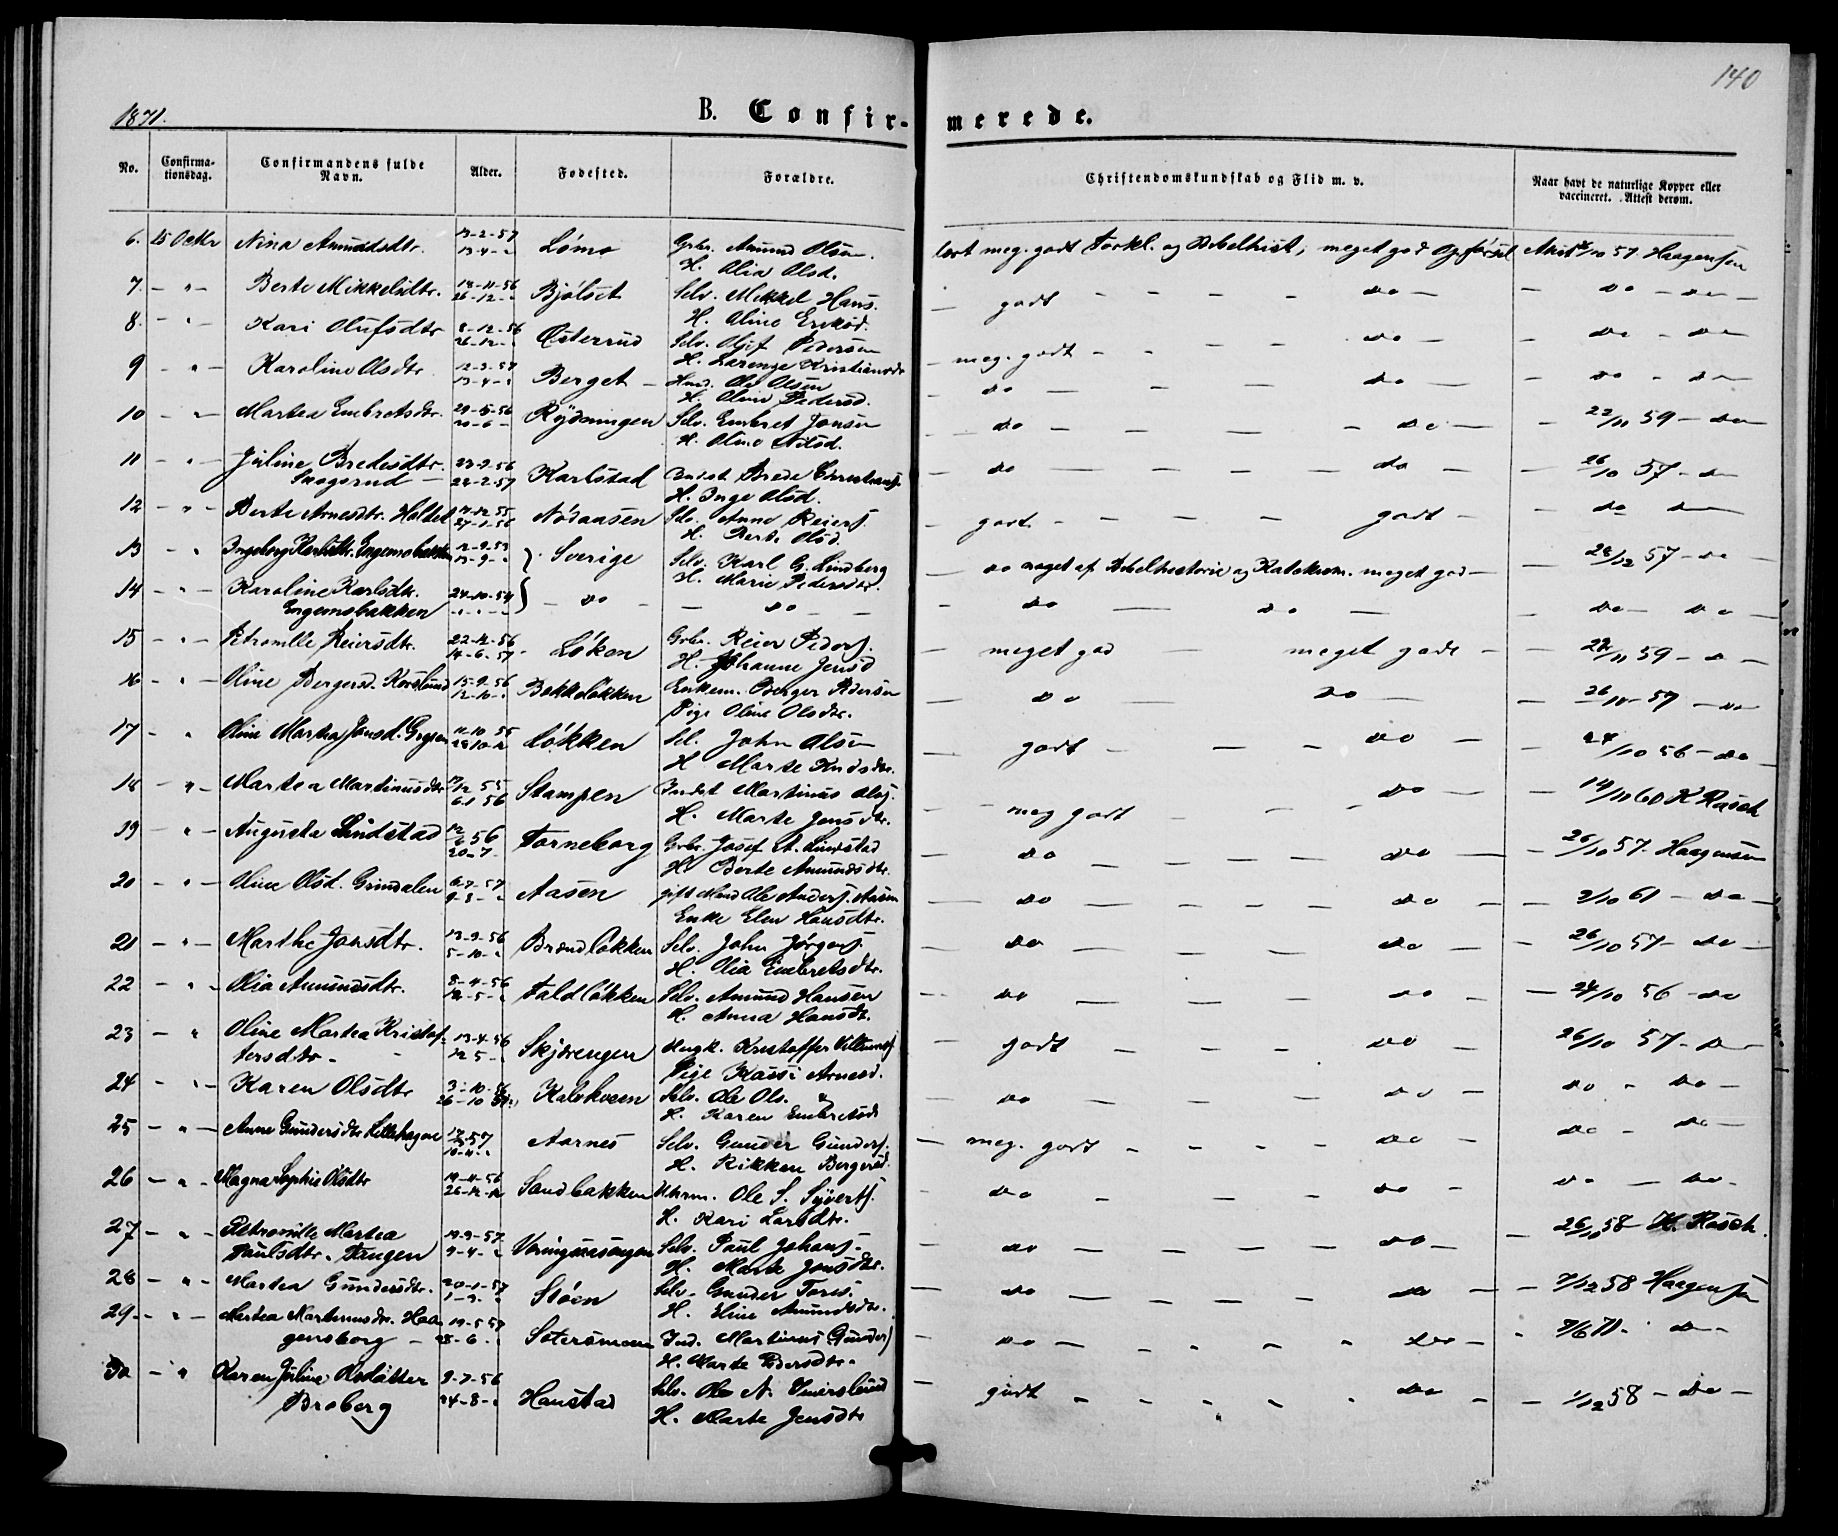 140
1871.
B. Confir-merede.
No.
Confirma-tionsdag.
Confirmandens fulde Navn.
Alder.
Fødested.
Forældre.
Christendomskundskab og Flid m. v.
Naar havt de naturlige Kopper eller vaccineret. Attest derom.
6. 15 Octbr Nina Amundsdtr. 13-2-57 Lömo Gbr. Amund Olsen. lært meg. godt Forkl. og Bibelhist, meget god Opförsel Attest 26/10 57. Haagensen
13-4-" H. Olia Olsd.
7. - " - Berte Mikkelsdtr. 18-11-56 Bjölset Selv. Mikkel Hans. - godt - - - - do - - do - do -
26-12-" H. Oline Eriksd.
8. - " - Kari Olufsdtr 8-12-56 Österrud Selv. Oluf Pedersen - meg. godt - - - - do - - do - do
26-12-" H. Lorense Kristiansdr
9 - " - Karoline Olsdtr. 12-3-57 Berget - Hmd. Ole Olsen - do - - - do - - do - do
13-4-" H. Oline Pedersd.
10 - " - Martea Embretsdtr. 29-5-56 Rydningen Selv. Embret Jonsen - do - - - - do - - 22/11 59 - do
20-6- H. Oline Nilsd.
11 - " - Juline Bredesdtr. 23-9-56 Karlstad Indst. Brede Christians. - do - - - - do - - 26/10 57 - do
Saagerud - 22-2-57 H. Inge Olsd.
12 - " - Berte Arnesdtr. Holtet 14-12-55 Nödaasen Selv. Arne Reiers. - godt. - - - - godt - - do do
27-1-56 H. Berte Olsd.
13 - " Ingeborg Karlsdtr. Engemobakken 12-9-53 } Sverige Selv. Karl G. Lindberg - do noget af Bibelhistorie og Katekism. meget god - - 28/12 57 - do -
13-9-" H. Marie Pedersdtr.
14 - " - Karoline Karlsdtr. 24-10-54 } - do - - do - - - do - do - - do - do -
Engemobakken -"-"-
15 - " - Petronille Reiersdtr. 22-12-56 Löken Gbr. Reier Peders. - meget god - meget godt - - 22/11 59 - do -
14-6-57 H. Johanne Jensd
16 - " - Oline Bergersd. Korslund 15-9-56 Bakkelökken Enkem. Berger Pedersen - do - do - - 26/10 57 - do
12-10-" Pige Oline Olsdtr.
17 - " Oline Martea Jonsd. Grysen 11-10-55 Lökken Sel. John Olsen - godt - - - do - - 24/10 56 - do
28-10-" H Marte Knudsdtr.
18 - " - Martea Martinusdtr 17/12 55 Stampen Indst Martinus Ols. - meg godt - - - do - - 14/11 60 K Rasch
6-1 56 H. Marte Jensdtr.
19 - " - Augusta Lindstad 12/6 56 Torneborg Gbr. Josef A. Lindstad - do - - - - do - - 26/10 57. Haagensen
20-7- H. Berte Amundsdtr.
20 - " - Oline Olsd. Grindalen 6-7-57 Aasen gift Mand Ole Anders. Aasen - do - - - - do - - 2/10 61 - do -
9-8-" Enke Elen Hansdtr.
21 - " - Marthe Jonsdtr. 13-9-56 Brændlökken Selv. John Jörgens. - do - - - - do - - 26/10 57 - do -
5-10-" H. Olia Embretsdtr.
22 - " - Olia Amundsdtr. 8-4-56 Faldlökken Selv. Amund Hansen - do - - - - do - - 24/10 56 - do
12-5-" H. Anna Hansdtr.
23 - " Oline Martea Kristof- 13-4-56 Skjörengen Ungk. Kristoffer Villums. - godt - - - - do - - 26/10 57 - do -
fersdtr - 12 5-" Pige Kassi Arnesd.
24 - " - Karen Olsdtr 3-10-56 Kalvkveen Selv. Ole Ols. - do - - - - do - - do - do -
26-10 H. Karen Embretsdr
25 - " - Anne Gundersdtr Lillehagen 17/3 57 Aarnes Selv. Gunder Gunders. - meg. godt - - - - do - do - do -
10-4-" H. Rikken Bergersd.
26 - " - Magna Sophie Olsdtr 14-11-56 Sandbakken Uhrm. Ole S. Syverts. - do - - - - do - do - do -
26-12- H. Kari Larsdtr.
27 - " - Petronille Martea 19-3-57 Voringnæsengen Selv. Paul Johans. - do - - - - do - - 26/10 58 - K. Rasch.
Paulsdtr. Tangen 9-4-" H. Marte Jonsdtr.
28 - " - Martea Gundersdtr. 20-1-57 Stöen Selv. Gunder Tores. - do - - - - do - - 7/12 58 Haagensen
1-3-" H. Eline Amundsdtr.
29 - " - Martea Martinusdr. Haa- 19-5-57 Sætersmoen Ind. Martinus Gunders. - do - - - - do - - 7/6 71 - do -
gensborg - 28-6-" H. Marte Pedersdtr.
30 - " Karen Juline Olsdatter 9-7-56 Haustad Selv. Ole A. - godt - - - - do - - 1/12 58 - do -
Broberg 24-8-" H. Marte Jensdtr